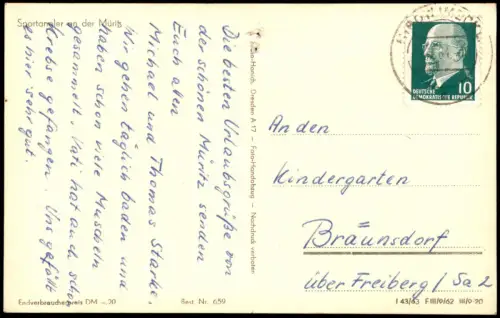 Sportangler an der Müritz
Die besten Urlaubsgrüße von
der schönen Müritz senden
Euch allen
Michael und Thomas Starke.
Wir gehen täglich baden und
haben schon viele Muscheln
gesammelt. Vati hat auch schon
Krebse gefangen. Uns gefällt
es hier sehr gut.
Endverbraucherpreis DM -.20
Best. Nr. 659
Foto-Handt Dresden A 17 – Foto-Handabzug – Nachdruck verboten
10
DEUTSCHE
DEMOKRATISCHE REPUBLIK
An den
Kindergarten
Bräunsdorf
über Freiberg / Sa 2